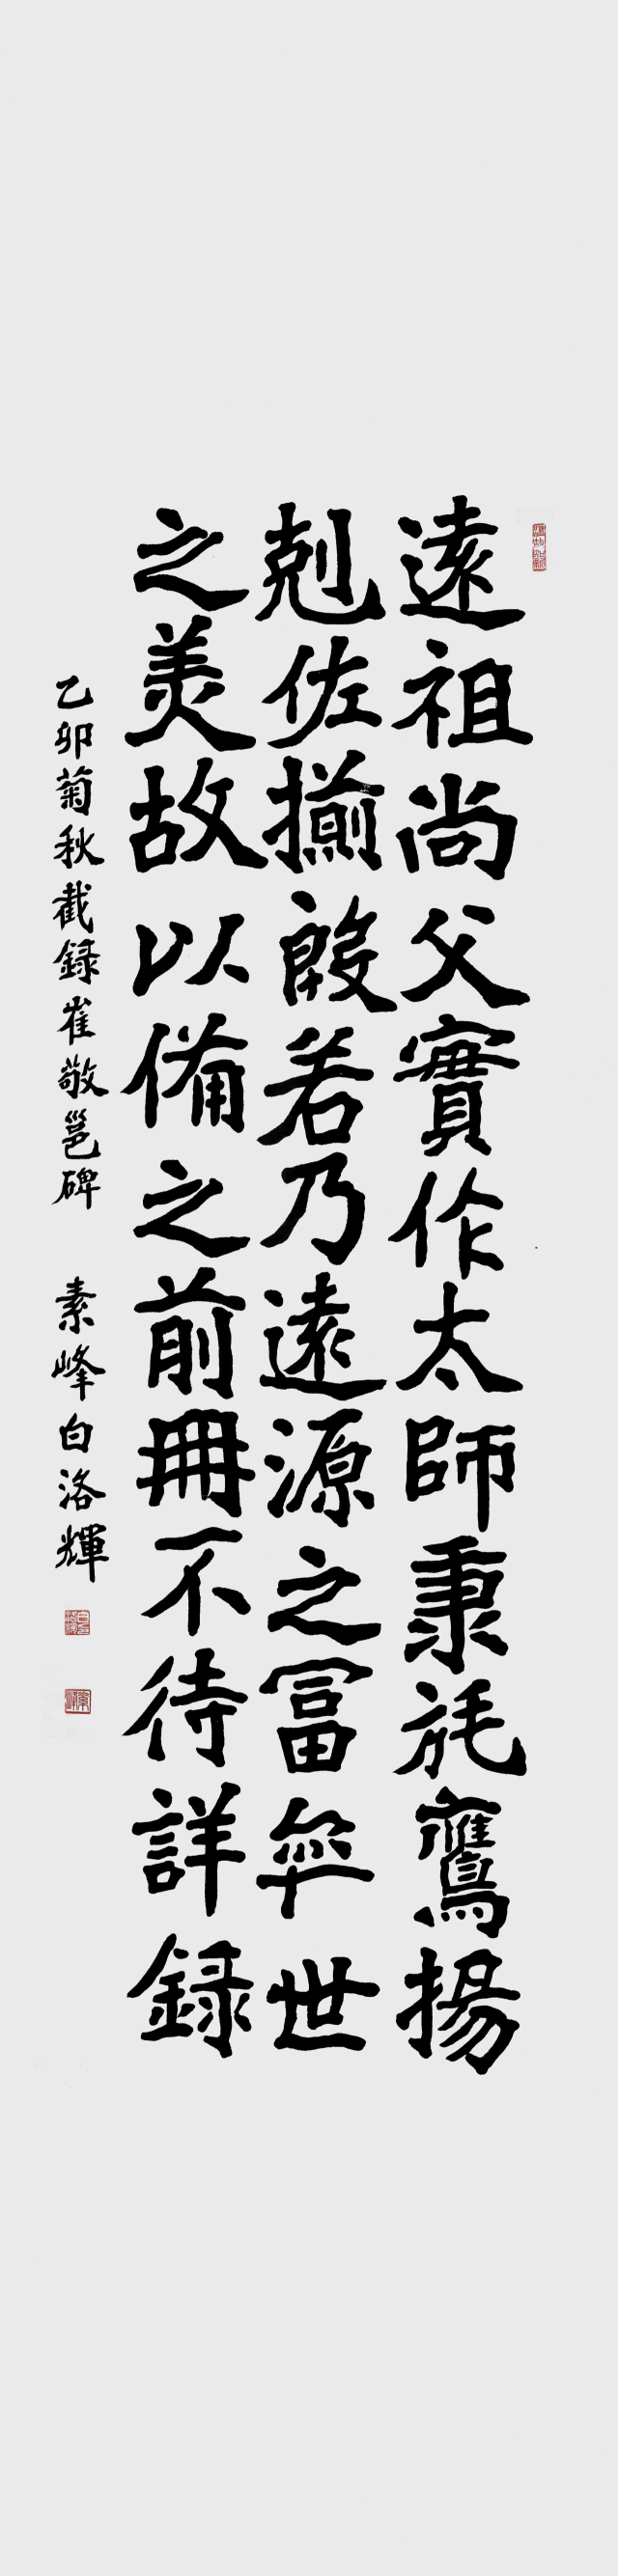 遠祖尚父實作太師秉旄鷹揚
剋佐揃殷若乃遠源之富弈世
之美故以備之前冊不待詳錄
乙卯菊秋截録崔敬邕碑 素峰白洛輝